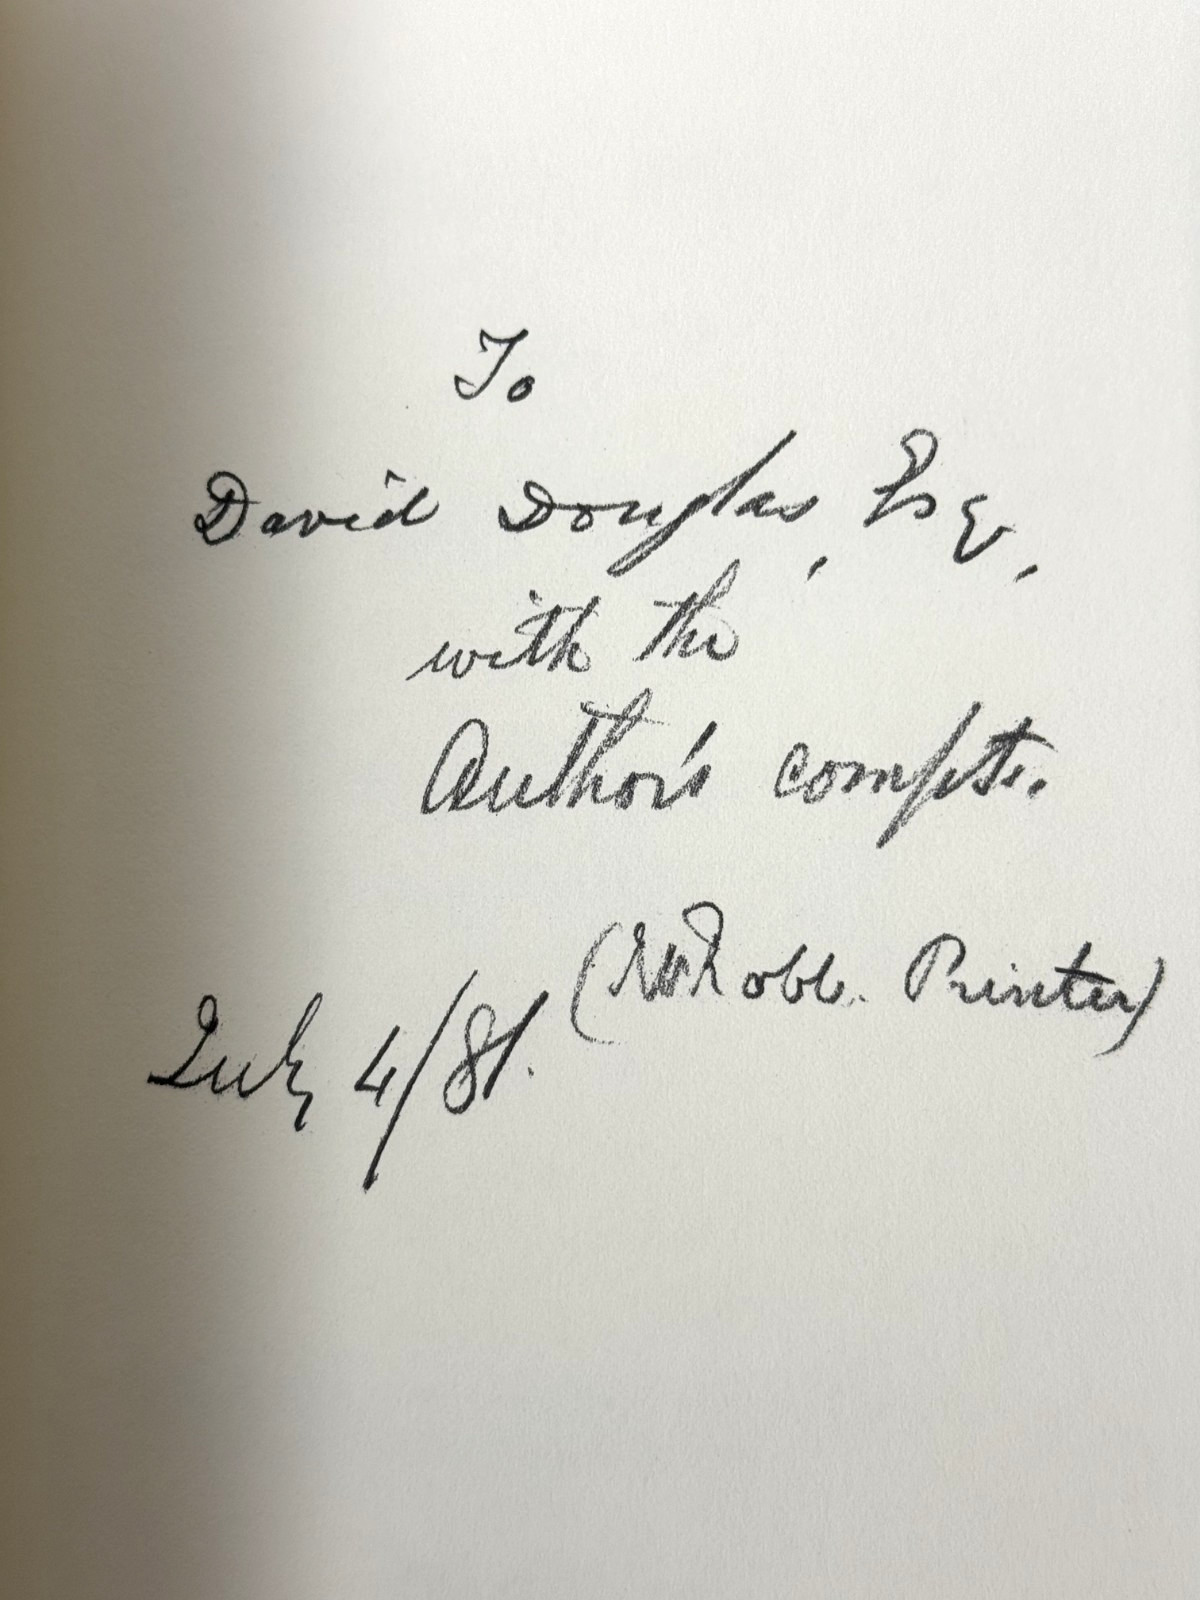 To
David Douglas, Esq,
with the
Author's compts.
( Robb. Printer)
July 4/81.